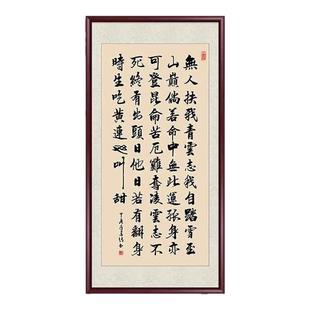 無人扶我青雲志我自踏雪至
山巔倘若命中無此運孤身亦
可登昆侖苦厄難奪凌雲志不
死終有出頭日他日若有翻身
時生吃黃連叫甜